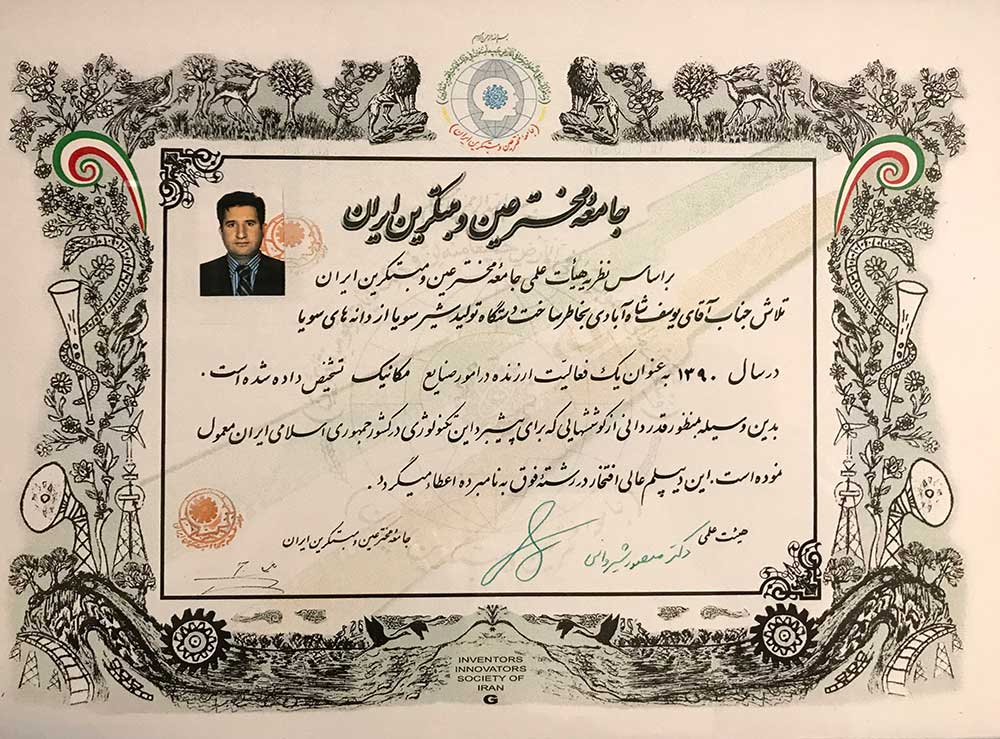 بسم الله الرحمن الرحیم
(جامعه مخترعین و مبتکرین ایران)
جامعهٔ مخترعین و مبتکرین ایران
براساس نظریه هیأت علمی جامعهٔ مخترعین و مبتکرین ایران
تلاش جناب آقای یوسف شاه آبادی بخاطر ساخت دستگاه تولید شیر سویا از دانه های سویا
در سال ۱۳۹۰ به عنوان یک فعالیت ارزنده در امور صنایع مکانیک تشخیص داده شده است.
بدین وسیله بمنظور قدردانی از کوششهایی که برای پیشبرد این تکنولوژی در کشور جمهوری اسلامی ایران معمول
نموده است. این دیپلم عالی افتخار در رشتهٔ فوق به نامبرده اعطاء میگردد.
هیئت علمی
جامعهٔ مخترعین و مبتکرین ایران
دکتر منصور
INVENTORS
INNOVATORS
SOCIETY OF
IRAN
G